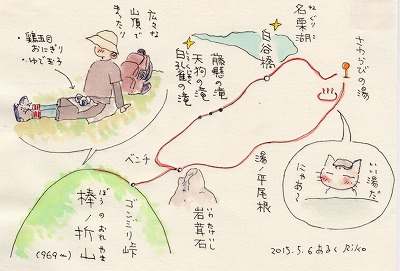 広々な
山頂で
まったり
・鶏五目
おにぎり
・ゆで玉子
なぐり
名栗湖
白谷橋
さわらびの湯
藤懸の滝
天狗の滝
白孔雀の滝
湯ノ平尾根
いい湯だ
にゃあ〜
ベンチ
いわたけいし
岩茸石
ゴンジリ峠
ぼうのおれやま
棒ノ折山
(969m)
2013.5.6 あるく Riko